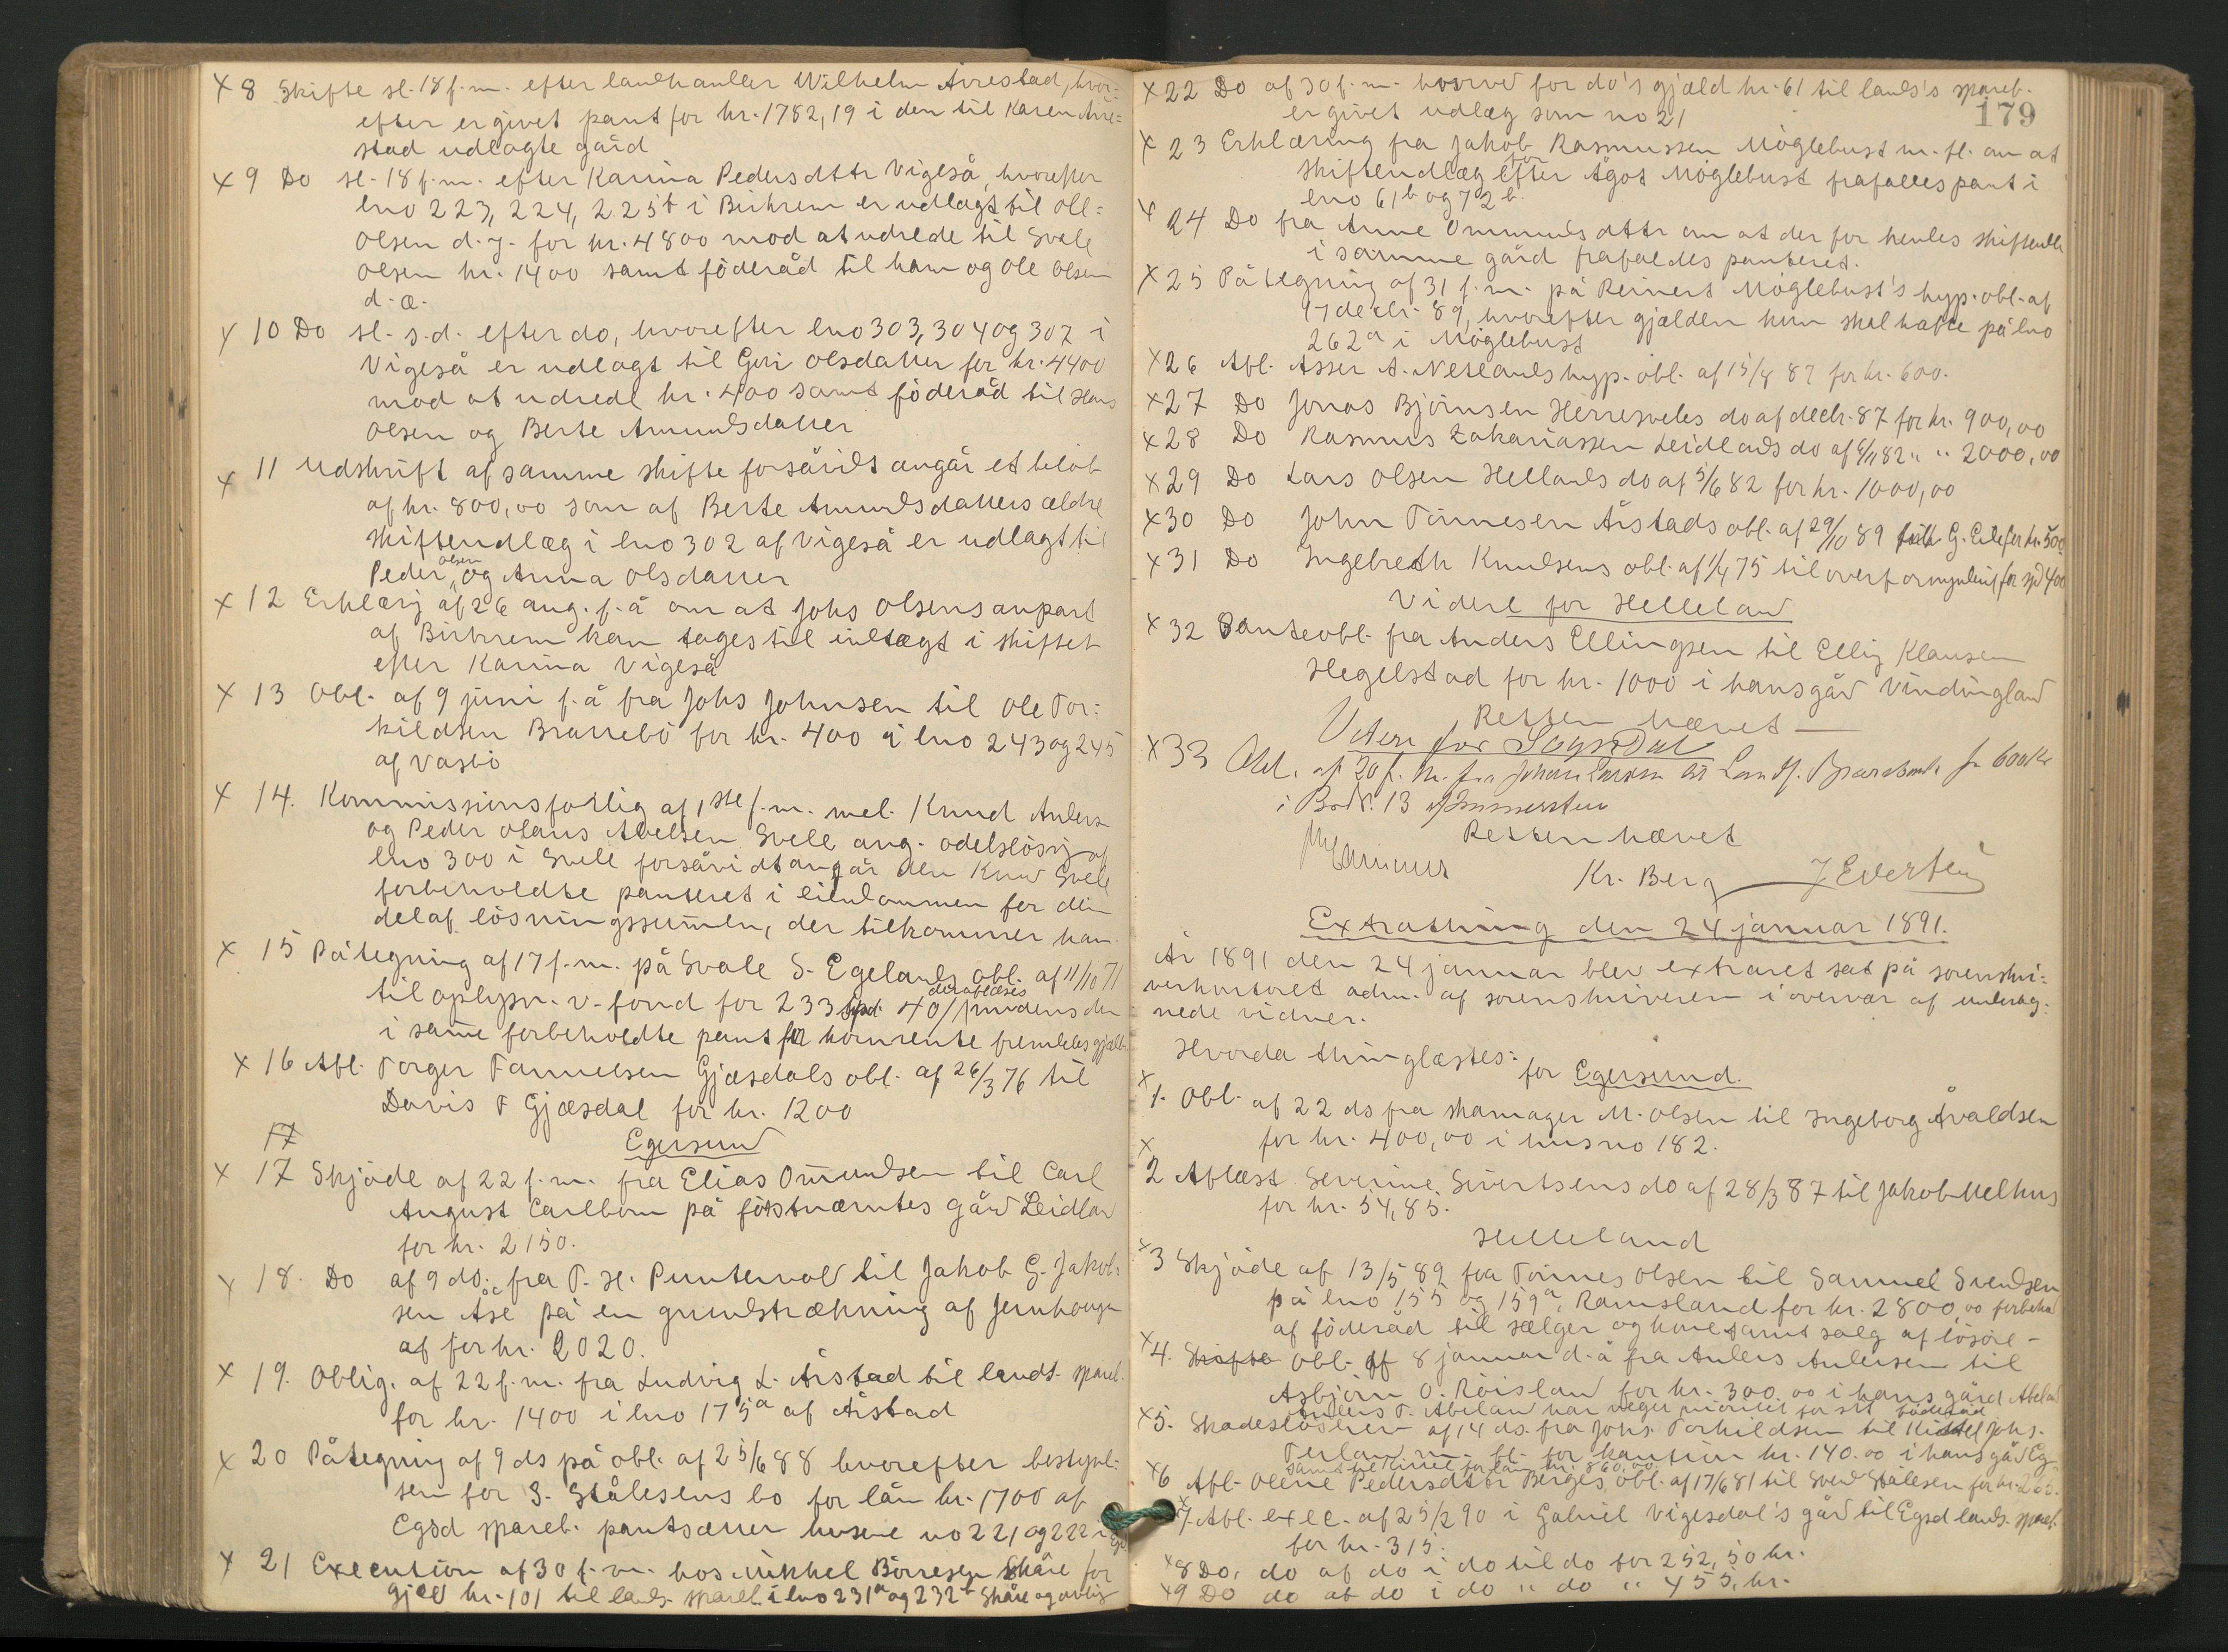 x 8 Skifte sl. 18 f. m. efter landhandler Wilhelm Årrestad, hvor-
efter er givet pant for kr. 1782,19 i den til Karen Årre=
stad udlagte gård
x 9 Do sl. 18 f. m. efter Karina Pedersdttr Vigeså, hvorefter
lno 223, 224, 225b i Birkrem er udlagt til Ole
Olsen d. y. for kr. 4800 mod at udrede til Svale
Olsen kr. 1400 samt föderåd til ham og Ole Olsen
d. æ.
x 10 Do sl. s. d. efter do, hvorefter lno 303, 304 og 307 i
Vigeså er udlagt til Guri Olsdatter for kr. 4400
mod at udrede kr. 400 samt föderåd til Hans
Olsen og Berte Amundsdatter
x 11 Udskrift af samme skifte forsåvidt angår et belöb
af kr. 800,00 som af Berte Amundsdatters ældre
skifteudlæg i lno 302 af Vigeså er udlagt til
Peder olsen og Anna Olsdatter
x 12 Erklærg af 26 aug. f. å om at Johs Olsens anpart
af Birkrem kan tages til indtægt i skiftet
efter Karina Vigeså
x 13 Obl. af 9 juni f. å fra Johs Johnsen til Ole Tor=
kildsen Brattebö for kr. 400 i lno 243 og 245
af Vasbö
x 14. Kommissionsforlig af 1ste f. m. mel. Knud Anders
og Peder Olaus Abelsen Svele ang. odelslösng af
lno 300 i Svele forsåvidt angår den Knud Svele
forbeholdte panteret i eiendommen for den
del af lösningssummen, der tilkommer ham.
x 15 Påtegning af 17 f. m. på Svale S. Egelands obl. af 11/10 71
til oplysn. v. fond for 233 spd. 40/ deraflæses medens den
i samme forbeholdte pant for kornrente fremdeles gjælder
x 16 Afl. Torger Tønnesen Gjæsdals obl. af 26/3 76 til
Davis T Gjæsdal for kr. 1200
17
Egersund
x 17 Skjöde af 22 f. m. fra Elias Omundsen til Carl
August Carlbom på förstnævntes gård Leidland
for kr. 2150.
x 18. Do af 9 ds. fra T. H. Puntervold til Jakob G. Jakob-
sen Åse på en grundstrækning af Jernhaugen
af for kr. 2020.
x 19. Oblig. af 22 f. m. fra Ludvig L. Årstad til landt. spareb.
for kr. 1400 i lno 175a af Årstad
x 20 Påtegning af 9 ds på obl. af 25/6 88 hvorefter bestyrel-
sen for S. Stålesens bo for lån kr. 1700 af
Egsd spareb. pantsætter husene no 221 og 222 i Egs
x 21 Execution af 30 f. m. hos Mikkel Börresen Skåre for
gjeld kr. 101 til lands. spareb. i lno 231a og 232b Skåre og övrig
179
x 22 Do af 30 f. m. hvorved for do's gjæld kr. 61 til lands's spareb.
er givet udlæg som no 21
x 23 Erklæring fra Jakob Rasmussen Möglebust m. fl. om at
for skifteudlæg efter Ågot Möglebust frafaldes pant i
lno 61b og 72b.
x 24 Do fra Anne Ommundsdttr om at der for hendes skifteudlæg
i samme gård frafaldes panteret.
x 25 Påtegning af 31 f. m. på Reinert Möglebust's hyp. obl. af
17 decbr. 89, hvorefter gjælden kun skal hæfte på lno
262a i Möglebust
x 26 Afl. Asser A. Netlands hyp. obl. af 15/8 87 for kr. 600.
x 27 Do Jonas Björnsen Herresveles do af decbr. 87 for kr. 900,00
x 28 Do Rasmus Zakariassen Leidlands do af 6/11 82 " " 2000,00
x 29 Do Lars Olsen Hellands do af 5/6 82 for kr. 1000,00
x 30 Do John Tönnesen Årstads obl. af 29/10 89 til G. Eide for kr. 500
x 31 Do Ingebreth Knudsens obl. af 1/4 75 til overformynderiet for spd 400
Videre for Helleland
x 32 Panteobl. fra Anders Ellingsen til Ellig Klausen
Hegelstad for kr. 1000 i hans gård Vindingland
Retten hævet
Videre for Sogndal
x 33 Obl. af 20 f. m. fra Johan Larsen til Lands. Sparebank for 600 Kr
i Br. N. 13
Retten hævet
Kr. Berg J Evertsen
Extrathing den 24 januar 1891.
År 1891 den 24 januar blev extraret sat på sorenskri=
verkontoret adm. af sorenskriveren i overvær af underteg-
nede vidner.
Hvorda thinglæstes:
for Egersund.
x 1. Obl. af 22 ds fra skomager M. Olsen til Ingeborg Åvaldsen
for kr. 400,00 i husno 182.
x 2 Aflæst Severine Sivertsens do af 28/3 87 til Jakob Melhus
for kr. 54,85.
Helleland
x 3 Skjöde af 13/5 89 fra Tönnes Olsen til Samuel Svendsen
på lno 155 og 159a, Ramsland for kr. 2800,00 forbehold
af föderåd til sælger og kone samt salg af lösöre -
x 4. Skifte Obl. af 8 januar d. å fra Anders Andersen til
Asbjörn O. Röisland for kr. 300.00 i hans gård Abeland
Anders T. Abeland har veget prioritet for sit föderåd
x 5. Skadeslösbrev af 14 ds. fra Johs. Torkildsen til Kittel Johs.
Terland m. fl. for kaution kr. 140.00 i hans gård Eg.
samt for lån kr. 860,00.
x 6 Afl. Olene Pedersdtter Berges obl. af 17/6 81 til Svend Stålesen for kr. 260.
x 7. Afl. exec. af 25/2 90 i Gabriel Vigesdal's gård til Egsd lands. spareb.
for kr. 315.
x 8 Do. do af do i do til do for 252,50 kr.
x 9 Do do af do i do " do " 455, kr.